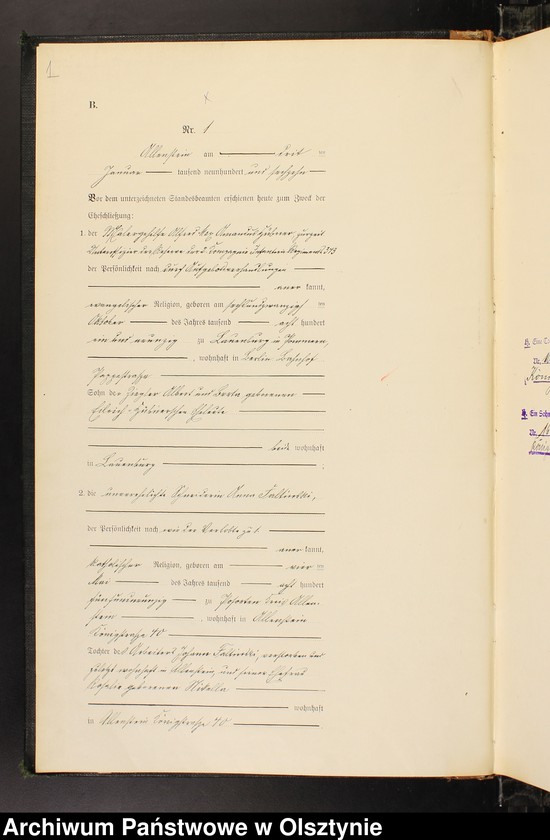 1
B.
Nr. 1
Allenstein am drei ten
Januar tausend neunhundert und sechzehn
Vor dem unterzeichneten Standesbeamten erschienen heute zum Zweck der
Eheschließung:
1. der Malergehilfe Hübner, zurzeit
Unteroffizier der Reserve Kompagnie Infanterie Regiments
der Persönlichkeit nach durch Aufgebotsverhandlungen
aner kannt,
evangelischer Religion, geboren am sechsundzwanzigs ten
Oktober des Jahres tausend acht hundert
ein und neunzig zu Lauenburg in Pommern,
, wohnhaft in Berlin Bahnhof
Sohn der Ziegler Albert und Berta geborenen
Hübnerschen Eheleute
beide wohnhaft
in Lauenburg ;
2. die unverehelichte Schneiderin Anna
der Persönlichkeit nach wie der Verlobte zu 1.
aner kannt,
katholischer Religion, geboren am vier ten
Mai des Jahres tausend acht hundert
fünfundneunzig zu Allen-
stein , wohnhaft in Allenstein
Königstraße 40
Tochter des Arbeiters Johann verstorben und
zuletzt wohnhaft in Allenstein, und seiner Ehefrau
Rosalie geborenen
wohnhaft
in Allenstein Königstraße 40
Nr.
Nr.
Archiwum Państwowe w Olsztynie